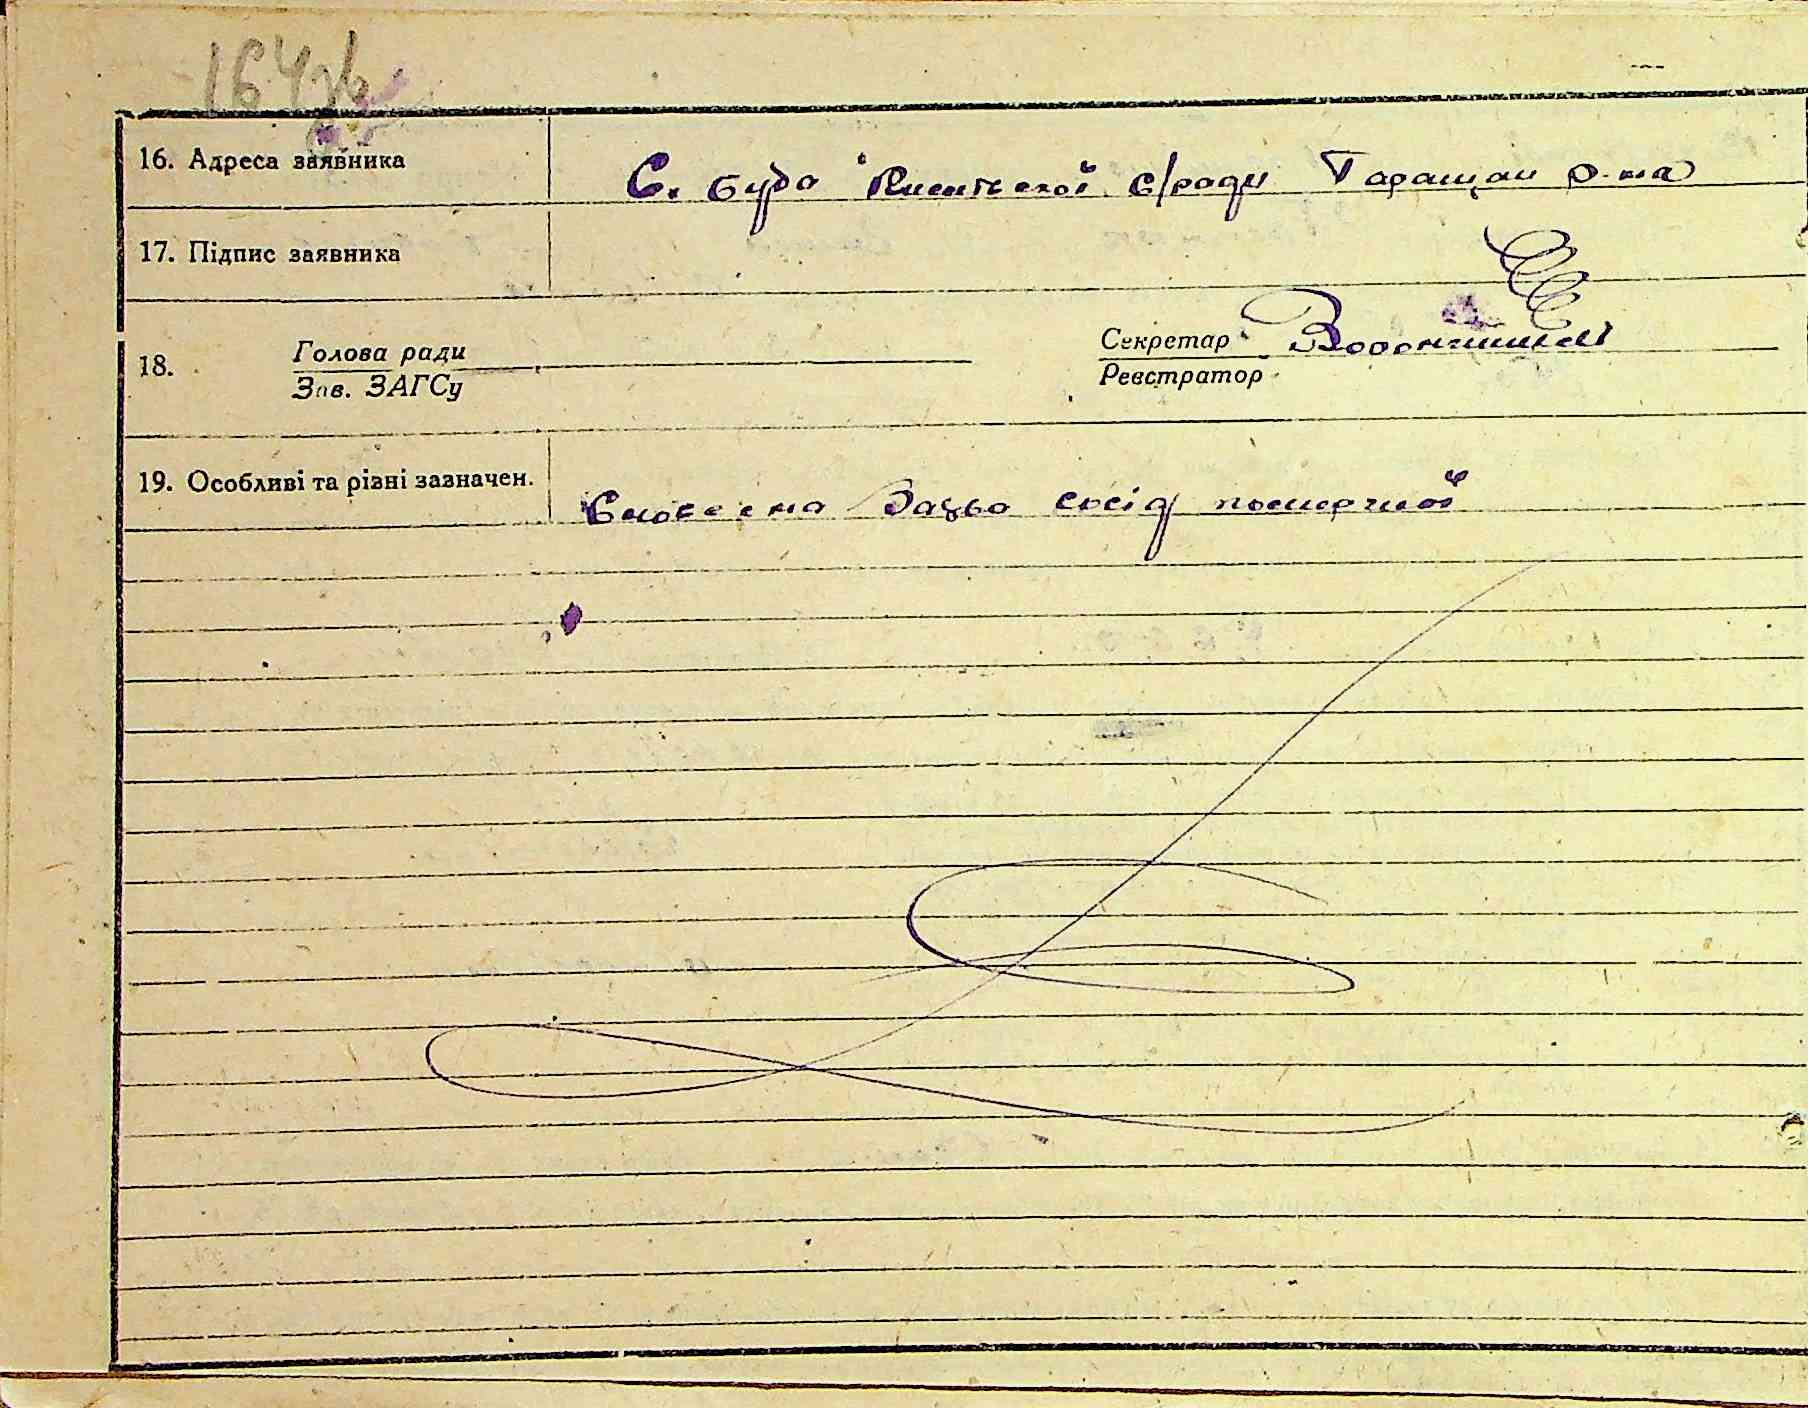 164зв
16. Адреса заявника С. Буда с/ради Таращан р-на
17. Підпис заявника
18. Голова ради Секретар
Зав. ЗАГСу Реєстратор
19. Особливі та різні зазначен. Словесна заява сусід помершої